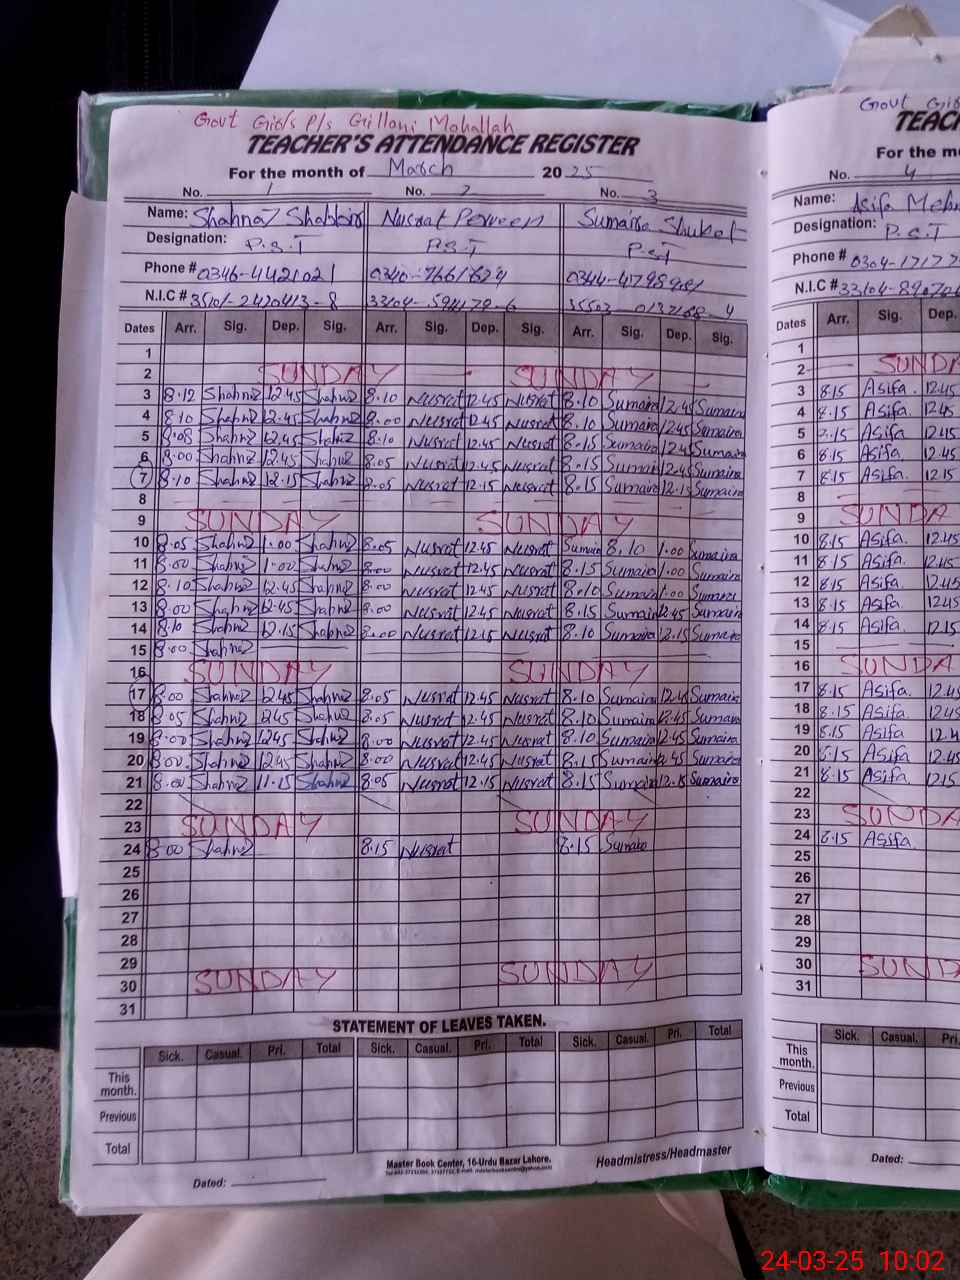 Govt Girls P/s Gillani Mohallah
TEACHER'S ATTENDANCE REGISTER
For the month of March 2025
No. 1 No. 2 No. 3
Name: Shahnaz Shabbir Nusrat Perveen Sumaira Shukat
Designation: P.S.T P.S.T P.S.T
Phone # 0346-4421021
N.I.C #
Dates Arr. Sig. Dep. Sig. Arr. Sig. Dep. Sig. Arr. Sig. Dep. Sig.
1
2 SUNDAY SUNDAY
3 8.12 Shahnz 12.45 Shahnz 8.10 Nusrat 12.45 Nusrat 8.10 Sumaira 12.45 Sumaira
4 8.10 Shahnz 12.45 Shahnz 8.00 Nusrat 12.45 Nusrat 8.10 Sumaira 12.45 Sumaira
5 8.08 Shahnz 12.45 Shahnz 8.10 Nusrat 12.45 Nusrat 8.15 Sumaira 12.45 Sumaira
6 8.00 Shahnz 12.45 Shahnz 8.05 Nusrat 12.45 Nusrat 8.15 Sumaira 12.45 Sumaira
7 8.10 Shahnz 12.15 Shahnz 8.05 Nusrat 12.15 Nusrat 8.15 Sumaira 12.15 Sumaira
8
9 SUNDAY SUNDAY
10 8.05 Shahnz 1.00 Shahnz 8.05 Nusrat 12.45 Nusrat Sumaira 8.10 1.00 Sumaira
11 8.00 Shahnz 1.00 Shahnz 8.00 Nusrat 12.45 Nusrat 8.15 Sumaira 1.00 Sumaira
12 8.10 Shahnz 12.45 Shahnz 8.00 Nusrat 12.45 Nusrat 8.10 Sumaira 1.00 Sumaira
13 8.00 Shahnz 12.45 Shahnz 8.00 Nusrat 12.45 Nusrat 8.15 Sumaira 12.45 Sumaira
14 8.10 Shahnz 12.15 Shahnz 8.00 Nusrat 12.15 Nusrat 8.10 Sumaira 12.15 Sumaira
15 8.00 Shahnz
16 SUNDAY SUNDAY
17 8.00 Shahnz 12.45 Shahnz 8.05 Nusrat 12.45 Nusrat 8.10 Sumaira 12.45 Sumaira
18 8.05 Shahnz 12.45 Shahnz 8.05 Nusrat 12.45 Nusrat 8.10 Sumaira 12.45 Sumaira
19 8.00 Shahnz 12.45 Shahnz 8.00 Nusrat 12.45 Nusrat 8.10 Sumaira 12.45 Sumaira
20 8.00 Shahnz 12.45 Shahnz 8.00 Nusrat 12.45 Nusrat 8.15 Sumaira 12.45 Sumaira
21 8.00 Shahnz 11.15 Shahnz 8.05 Nusrat 12.15 Nusrat 8.15 Sumaira 12.15 Sumaira
22
23 SUNDAY SUNDAY
24 8.00 Shahnz 8.15 Nusrat 8.15 Sumaira
25
26
27
28
29
30 SUNDAY SUNDAY
31
STATEMENT OF LEAVES TAKEN.
Sick. Casual. Pri. Total Sick. Casual. Pri. Total Sick. Casual. Pri. Total
This month.
Previous
Total
Master Book Center, 16-Urdu Bazar Lahore.
Headmistress/Headmaster
Dated:
Govt
TEAC
For the m
No. 4
Name: Asifa
Designation: P.S.T
Phone # 0304-
N.I.C # 33104-
Dates Arr. Sig. Dep.
1
2 SUNDA
3 8.15 Asifa. 12.45
4 8.15 Asifa. 12.45
5 8.15 Asifa 12.45
6 8.15 Asifa. 12.45
7 8.15 Asifa. 12.15
8
9 SUNDA
10 8.15 Asifa. 12.45
11 8.15 Asifa. 12.45
12 8.15 Asifa 12.45
13 8.15 Asifa. 12.45
14 8.15 Asifa. 12.15
15
16 SUNDA
17 8.15 Asifa. 12.45
18 8.15 Asifa. 12.45
19 8.15 Asifa
20 8.15 Asifa. 12.45
21 8.15 Asifa. 12.15
22
23 SUNDA
24 8.15 Asifa.
25
26
27
28
29
30 SUNDA
31
Sick. Casual. Pri.
This month.
Previous
Total
Dated:
24-03-25 10:02